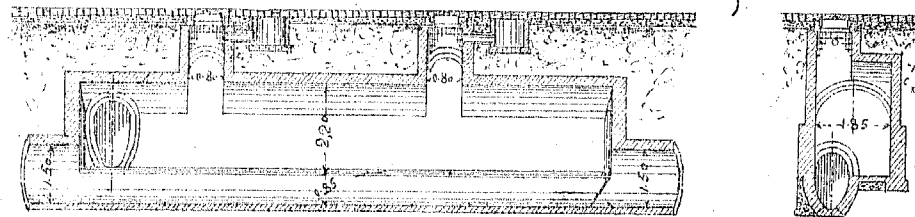 0.80
0.80
2,20
1.50
0.95
1.50
1.85